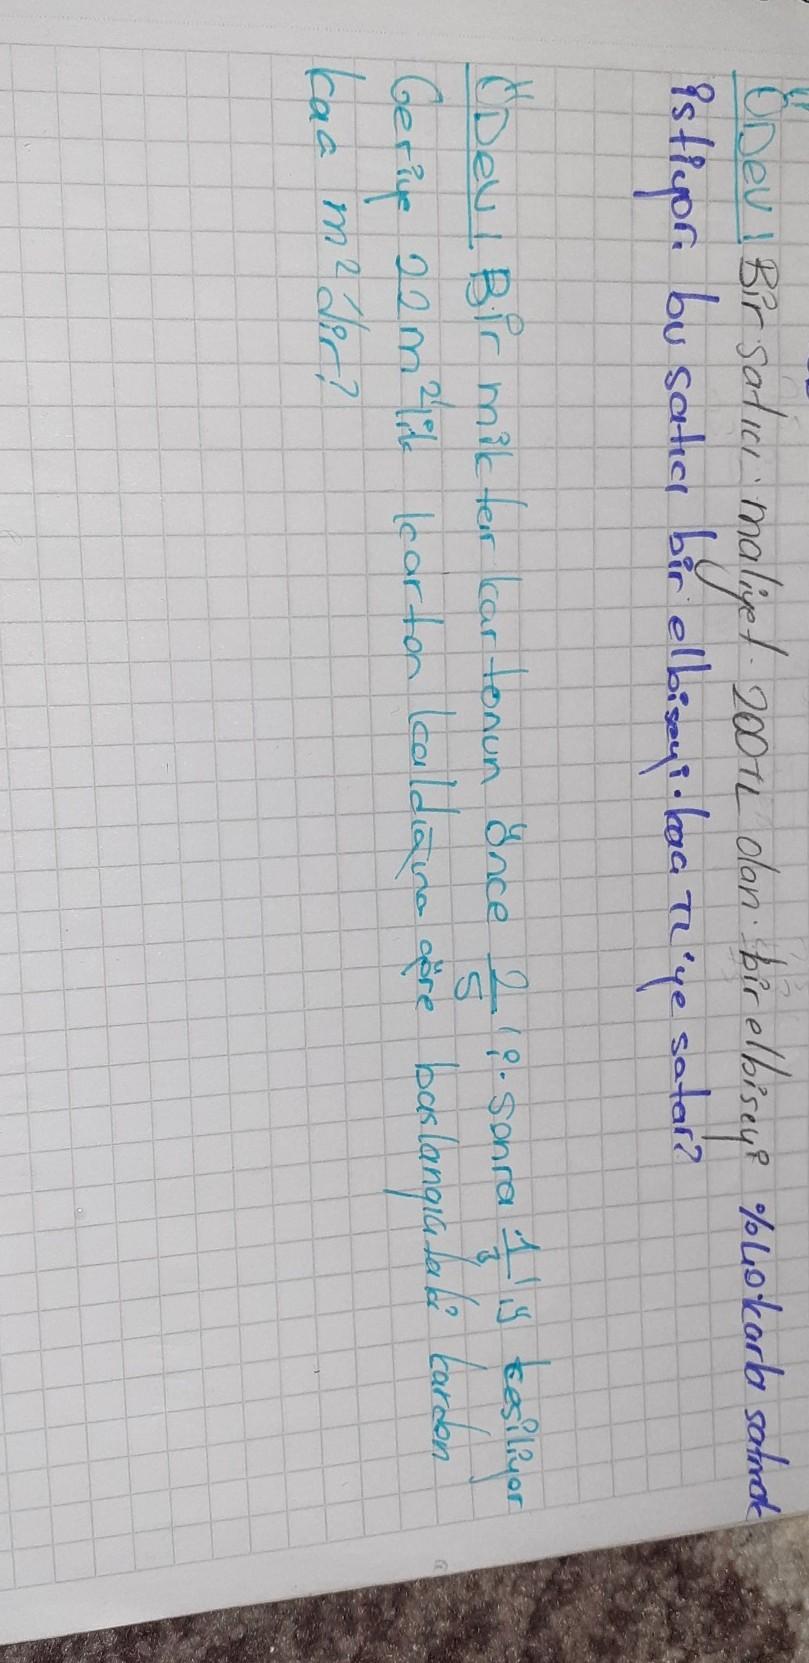 ÖDev 1 Bir satıcı maliyet 200TL olan bir elbiseyi %40 karla satmak
istiyor. bu satıcı bir elbiseyi kaç TL'ye satar?
ÖDev 1 Bir mikter kartonun önce 2/5 'i sonra 1/3 'ü kesiliyor
Geriye 22m²'lik karton kaldığına göre başlangıçtaki kardon
kaç m²'dir?